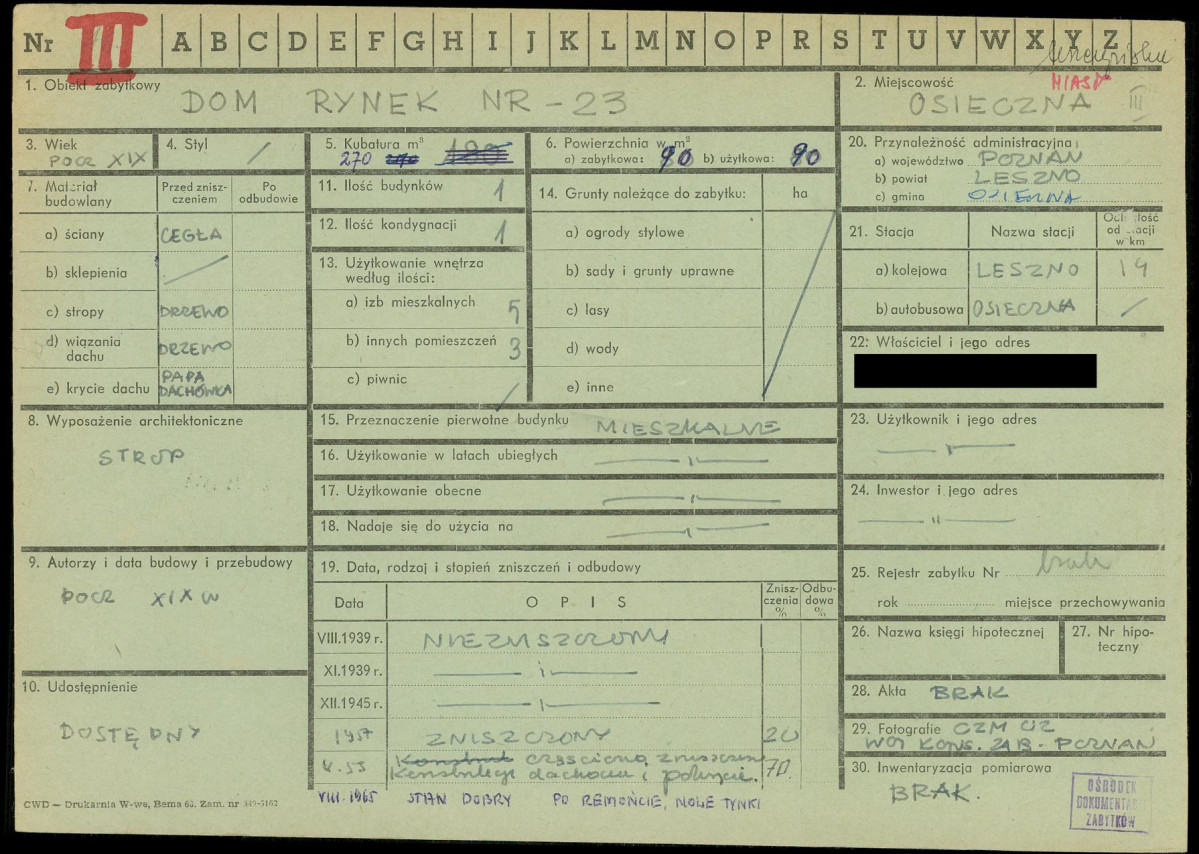 Nr III A B C D E F G H I J K L M N O P R S T U V W X Y Z
1. Obiekt zabytkowy
DOM RYNEK NR - 23
2. Miejscowość
MIAST
OSIECZNA III
3. Wiek
POCZ XIX
4. Styl /
5. Kubatura m³
270
6. Powierzchnia w m²
a) zabytkowa: 90 b) użytkowa: 90
20. Przynależność administracyjna
a) województwo POZNAŃ
b) powiat LESZNO
c) gmina OSIECZNA
7. Materiał budowlany
Przed zniszczeniem
Po odbudowie
a) ściany CEGŁA
b) sklepienia /
c) stropy DRZEWO
d) wiązania dachu DRZEWO
e) krycie dachu PAPA DACHÓWKA
11. Ilość budynków 1
12. Ilość kondygnacji 1
13. Użytkowanie wnętrza według ilości:
a) izb mieszkalnych 5
b) innych pomieszczeń 3
c) piwnic /
14. Grunty należące do zabytku: ha
a) ogrody stylowe
b) sady i grunty uprawne
c) lasy
d) wody
e) inne
21. Stacja Nazwa stacji Odległość od stacji w km
a) kolejowa LESZNO 14
b) autobusowa OSIECZNA /
22. Właściciel i jego adres
8. Wyposażenie architektoniczne
STROP
15. Przeznaczenie pierwotne budynku MIESZKALNE
16. Użytkowanie w latach ubiegłych — " —
17. Użytkowanie obecne — " —
18. Nadaje się do użycia na — " —
23. Użytkownik i jego adres
— " —
24. Inwestor i jego adres
— " —
9. Autorzy i data budowy i przebudowy
POCZ XIX W
10. Udostępnienie
DOSTĘPNY
19. Data, rodzaj i stopień zniszczeń i odbudowy
Data OPIS Zniszczenia % Odbudowa %
VIII.1939 r. NIEZNISZCZONY
XI.1939 r. — " —
XII.1945 r. — " —
1957 ZNISZCZONY 20
częściowo zniszczenie
Konstrukcji dachowej i pokrycie. 70.
VIII.1965 STAN DOBRY PO REMONCIE, NOWE TYNKI
25. Rejestr zabytku Nr brak
rok miejsce przechowywania
26. Nazwa księgi hipotecznej
27. Nr hipoteczny
28. Akta BRAK
29. Fotografie CZM OZ
WOJ KONS. ZAB - POZNAŃ
30. Inwentaryzacja pomiarowa
BRAK.
OŚRODEK
DOKUMENTACJI
ZABYTKÓW
CWD — Drukarnia W-wa, Bema 65. Zam. nr